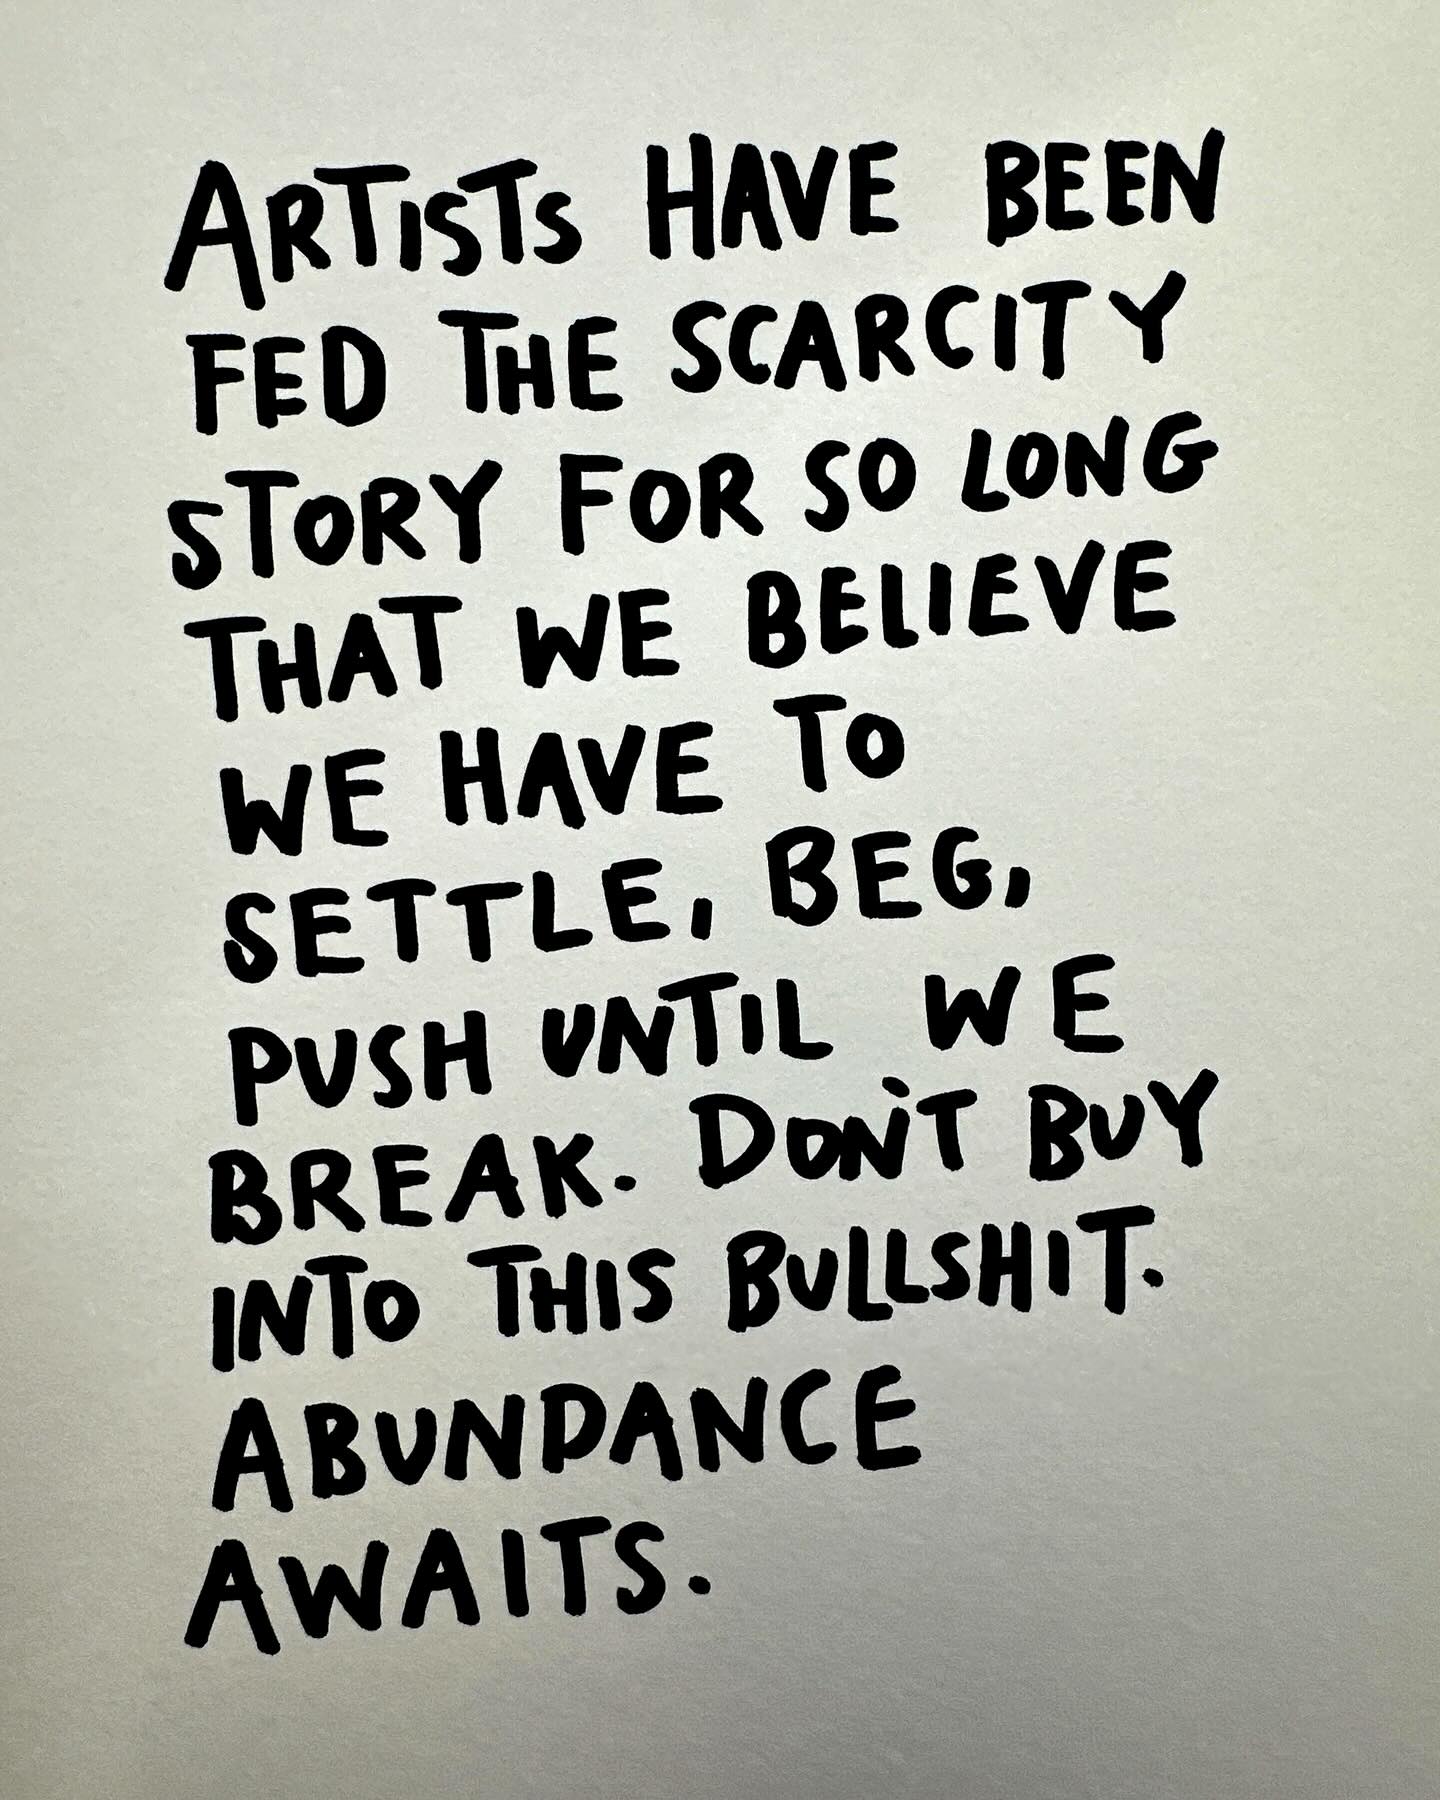 ARTISTS HAVE BEEN
FED THE SCARCITY
STORY FOR SO LONG
THAT WE BELIEVE
WE HAVE TO
SETTLE, BEG,
PUSH UNTIL WE
BREAK. DON'T BUY
INTO THIS BULLSHIT.
ABUNDANCE
AWAITS.